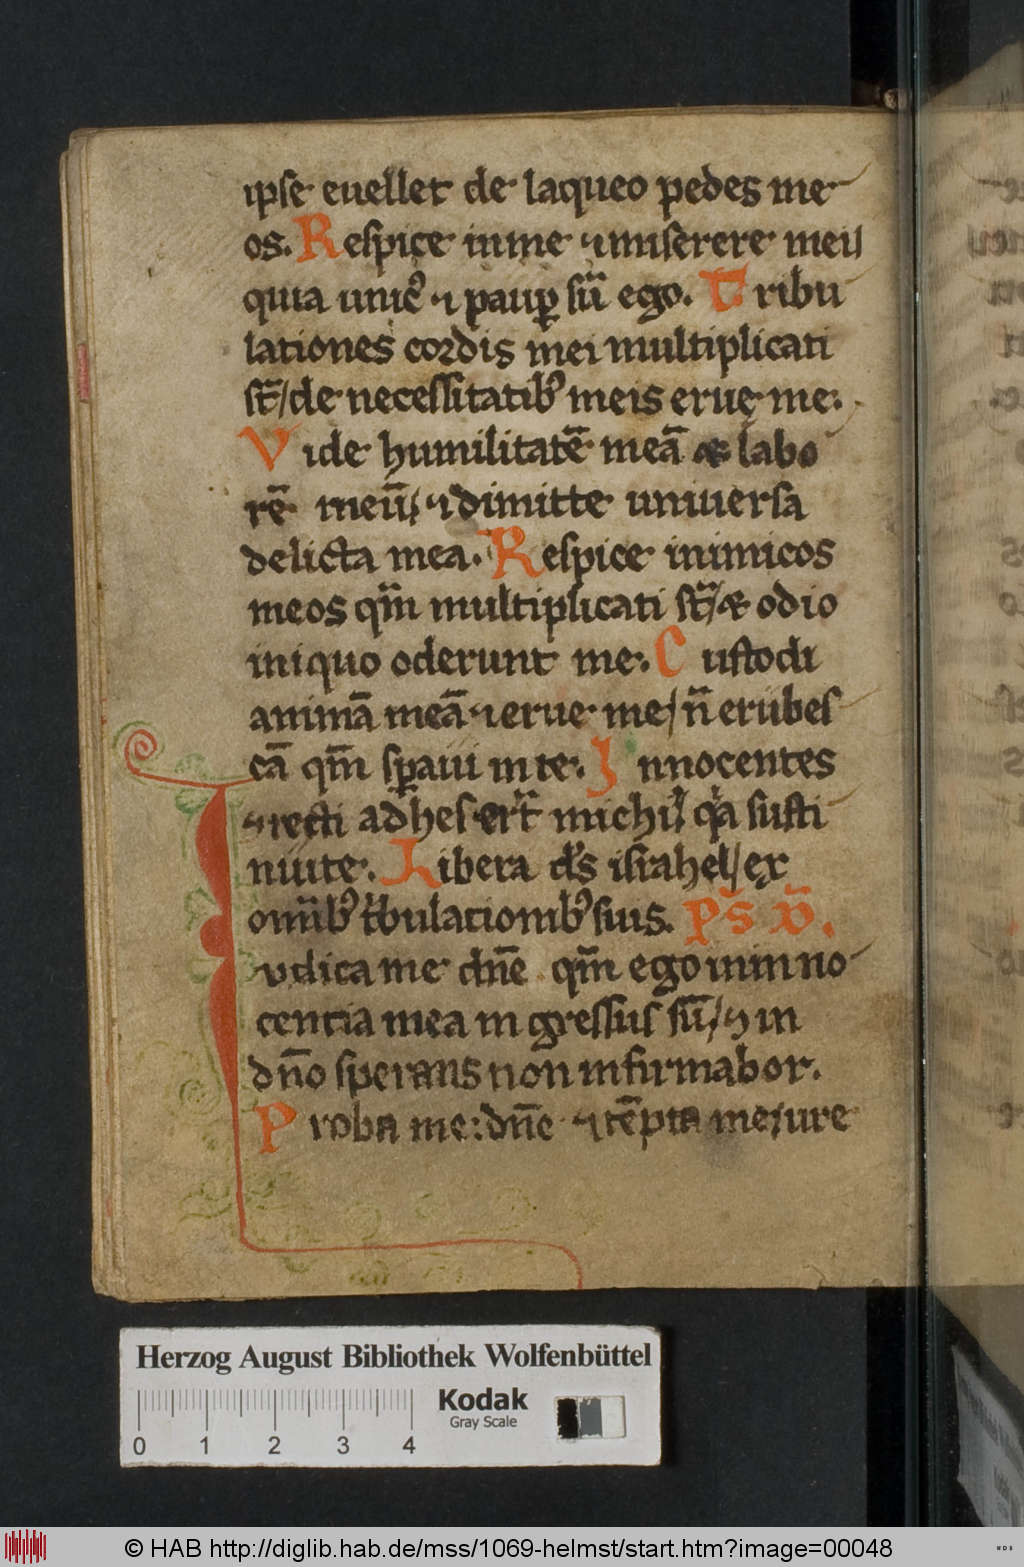 ipse euellet de laqueo pedes me
os. Respice in me ⁊ miserere mei
quia unic᷒ ⁊ paup̱ sū ego. Tribu
lationes cordis mei multiplicati
st̄/ de necessitatib᷒ meis erue me.
Vide humilitatē meā & labo
rē meū/ ⁊ dimitte uniuersa
delicta mea. Respice inimicos
meos qm̄ multiplicati st̄/ & odio
iniquo oderunt me. Custodi
animā meā ⁊ erue me/ n̄ erubes
cā qm̄ sp̱aui in te. Innocentes
⁊ recti adheser̄t michi/ qͣa susti
nui te. Libera ds̄ israhel/ ex
om̄ib᷒ tͥbulationib᷒ suis. ps̄ .D̄.
Iudica me dn̄e qm̄ ego in inno
centia mea ingressus sū/ ⁊ in
dn̄o sperans non infirmabor.
Proba me dn̄e ⁊ tēpta me/ ure
Herzog August Bibliothek Wolfenbüttel
Kodak
Gray Scale
0 1 2 3 4
© HAB http://diglib.hab.de/mss/1069-helmst/start.htm?image=00048